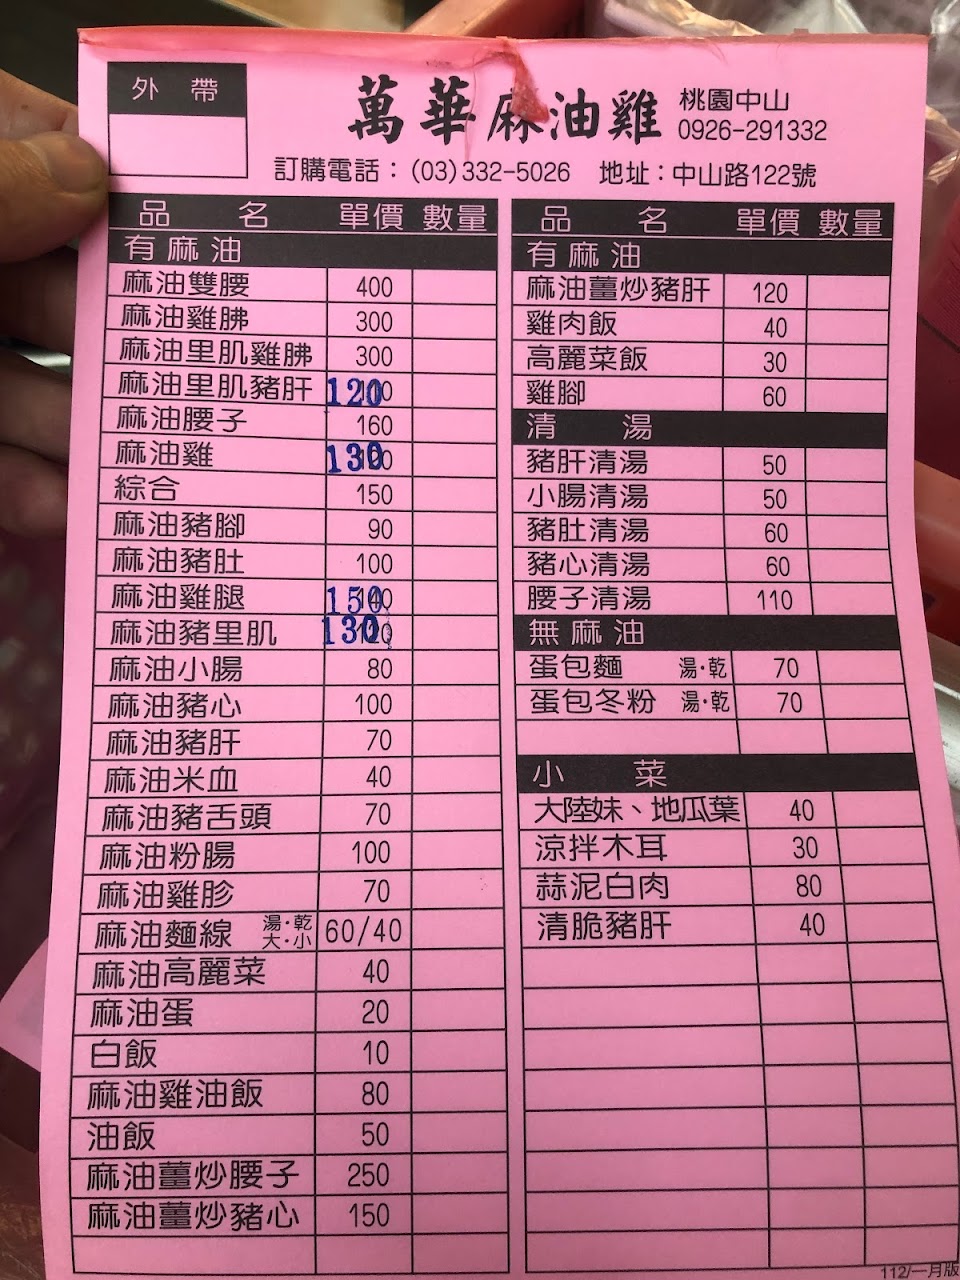 外 帶
萬華麻油雞
桃園中山
0926-291332
訂購電話：(03)332-5026 地址：中山路122號
品 名 單價 數量
有麻油
麻油雙腰 400
麻油雞胇 300
麻油里肌雞胇 300
麻油里肌豬肝 120
麻油腰子 160
麻油雞 130
綜合 150
麻油豬腳 90
麻油豬肚 100
麻油雞腿 150
麻油豬里肌 130
麻油小腸 80
麻油豬心 100
麻油豬肝 70
麻油米血 40
麻油豬舌頭 70
麻油粉腸 100
麻油雞胗 70
麻油麵線 湯·乾 大·小 60/40
麻油高麗菜 40
麻油蛋 20
白飯 10
麻油雞油飯 80
油飯 50
麻油薑炒腰子 250
麻油薑炒豬心 150
品 名 單價 數量
有麻油
麻油薑炒豬肝 120
雞肉飯 40
高麗菜飯 30
雞腳 60
清 湯
豬肝清湯 50
小腸清湯 50
豬肚清湯 60
豬心清湯 60
腰子清湯 110
無麻油
蛋包麵 湯·乾 70
蛋包冬粉 湯·乾 70
小 菜
大陸妹、地瓜葉 40
涼拌木耳 30
蒜泥白肉 80
清脆豬肝 40
112/一月版